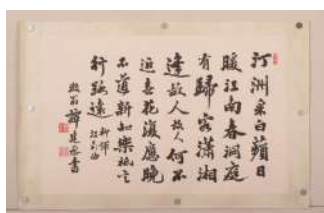 汀洲采白蘋日
暖江南春洞庭
有歸客瀟湘
逢故人故人何不
返春花復應晚
不道新知樂祇言
行路遠柳惲
江南曲